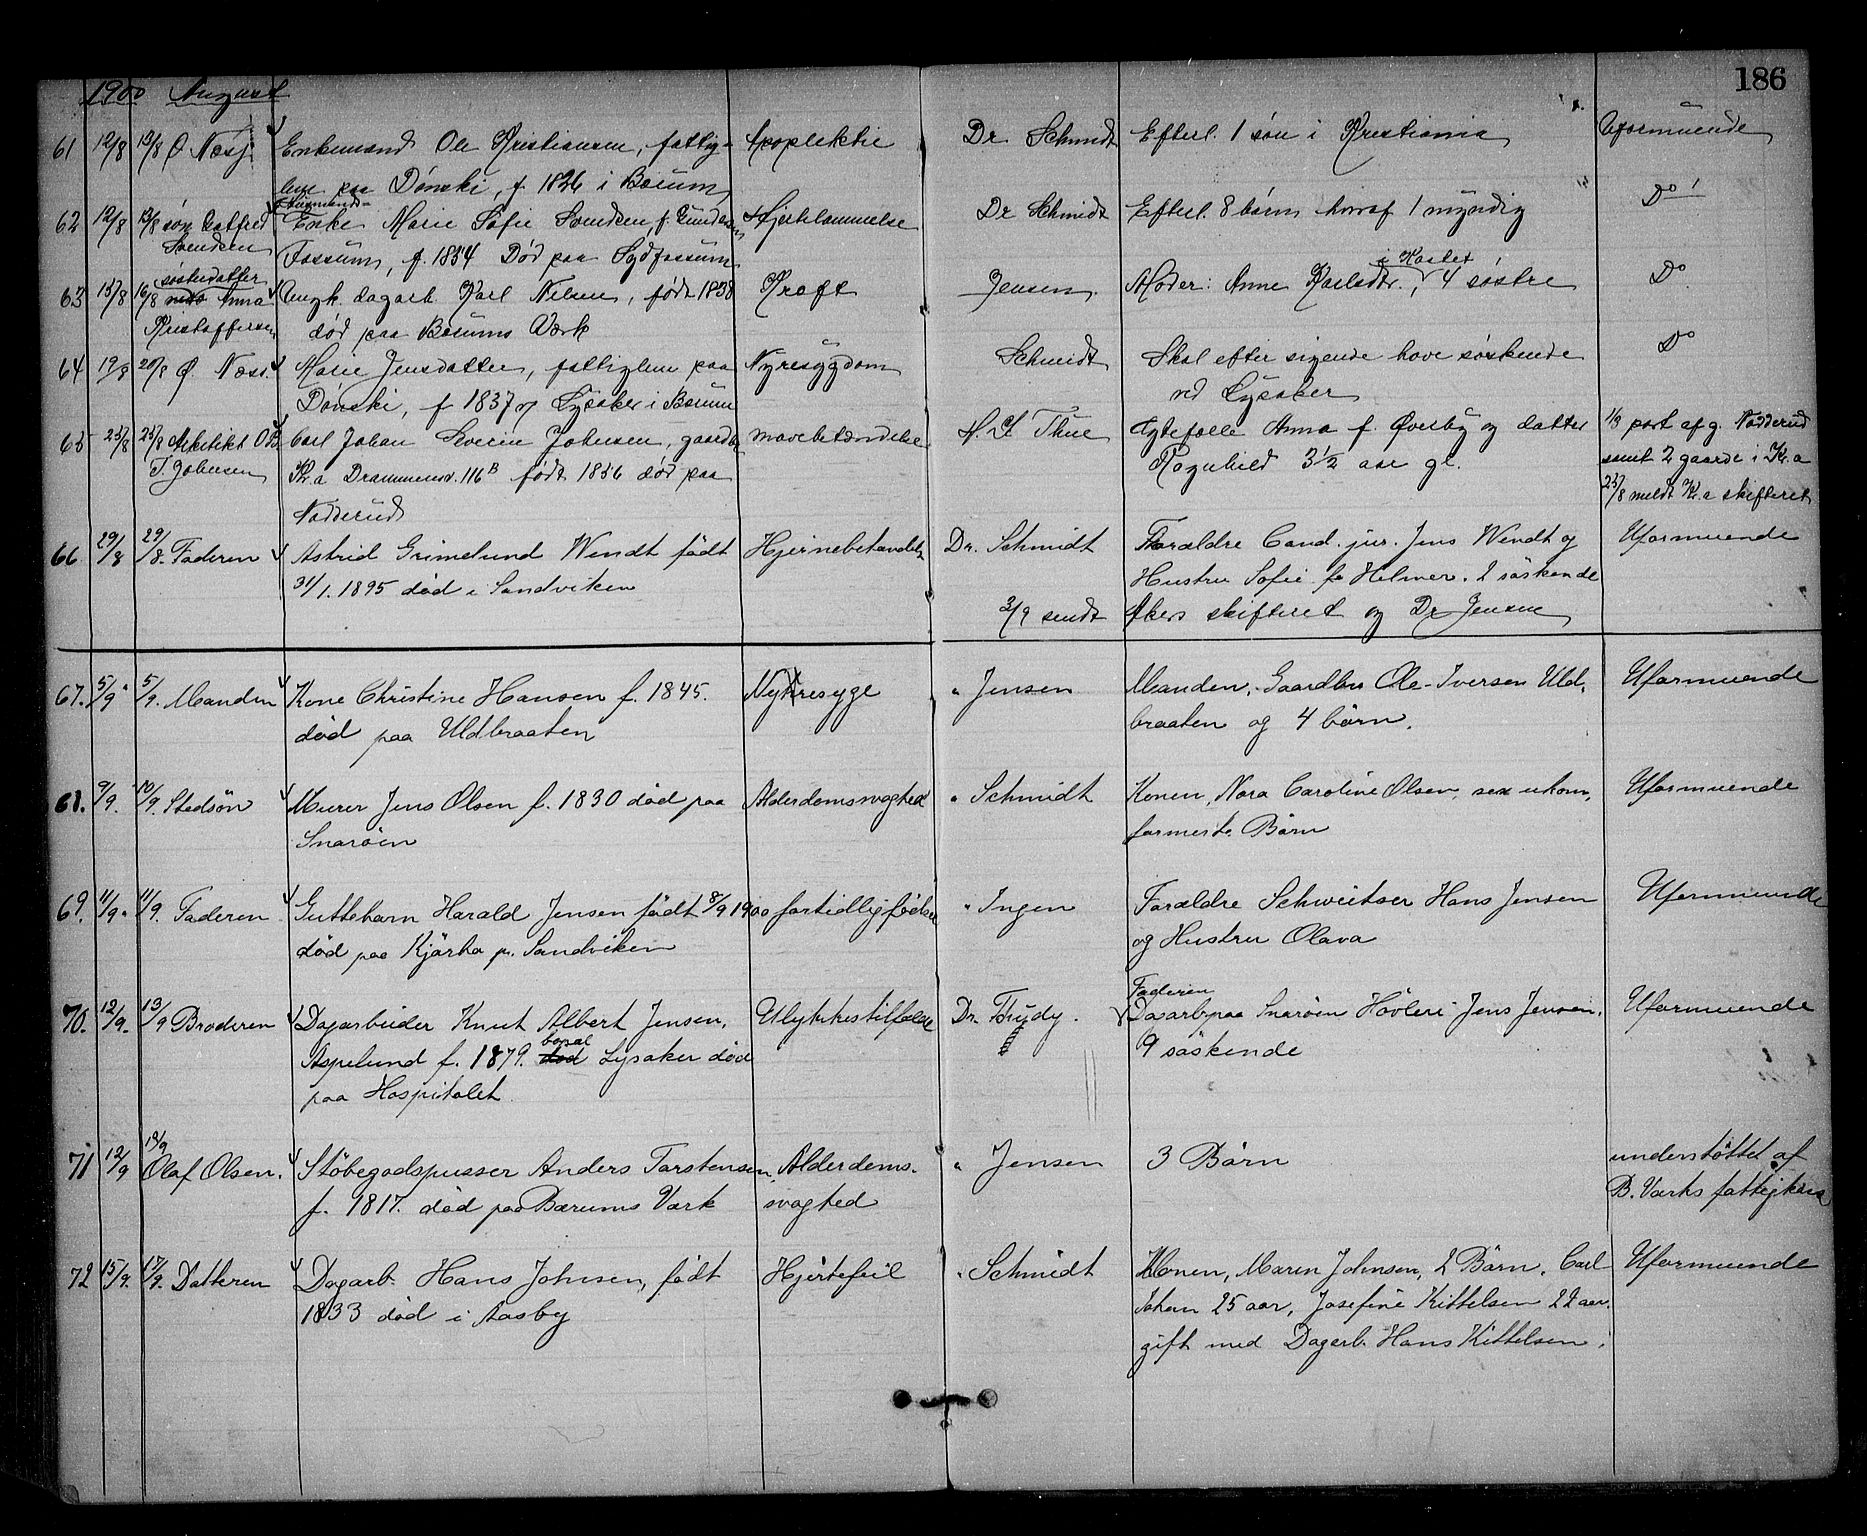 186
1900 August
61 12/8 13/8 Ø Næsj. Enkemand Ole Kristiansen, fattig- Apoplektie Dr Schmidt Efterl. 1 søn i Kristiania Uformuende
lem paa Dønski, f. 1826 i Bærum
62 12/8 13/8 søn Gotfred Enke Marie Sofie Svendsen, f. Gundersen Hjertelammelse Dr Schmidt Efterl. 8 børn hvoraf 1 myndig Do
Svendsen Fossum, f. 1854 Død paa Sydfossum
63 15/8 16/8 søsterdatter Anna Ungk. dagarb. Karl Nilsen, født 1838 Kræft Jensen Moder: Anne Karlsdtr., 4 søstre Do
Kristoffersen død paa Bærums Værk
64 19/8 20/8 Ø. Næss. Marie Jensdatter, fattiglem paa Nyresygdom Schmidt Skal efter sigende have søskende Do
Dønski, f 1837 Lysaker i Bærum ved Lysaker
65 23/8 25/8 Arkitekt O B. Carl Johan Severin Johnsen, gaardbr mavebetændelse H. Thue Egtefælle Anna f. Øverby og datter 1/3 part af g. Nadderud
T. Johnsen Kr.a Drammensv. 116B født 1856 død paa Ragnhild 3½ aar gl. samt 2 gaarde i Kr.a
Nadderud 25/8 meldt Kr.a skifteret
66 29/8 29/8. Faderen Astrid Grimelund Wendt født Hjernebetændelse Dr. Schmidt Forældre Cand. jur. Jens Wendt og Uformuende
31/1. 1895 død i Sandviken Hustru Sofie f. Hilmer. 2 søskende
3/9 sendt Akers skifteret og Dr Jensen
67. 5/9 5/9. Manden Kone Christine Hansen f. 1845. Nyresyge " Jensen Manden, Gaardbr Ole Iversen Uld- Uformuende
død paa Uldbraaten braaten og 4 børn.
68. 9/9. 10/9. Stedsøn Murer Jens Olsen f. 1830 død paa Alderdomssvaghed " Schmidt Konen, Nora Caroline Olsen, sex ukon- Uformuende
Snarøen firmerte Børn
69. 11/9. 11/9. Faderen Guttebarn Harald Jensen født 8/9 1900 fortidlig fødsel " Ingen Forældre Schweitser Hans Jensen Uformuende
død paa Kjørbo pr. Sandviken og Hustru Olava
70. 12/9. 13/9 Broderen Dagarbeider Knut Albert Jensen, Ulykkestilfælde Dr. Thudy. Faderen Dagarb. paa Snarøen Høvleri Jens Jensen, Uformuende
Aspelund f. 1879. bopal Lysaker død 9 søskende
paa Hospitalet
71 12/9 18/9 Olaf Olsen. Støbegodspusser Anders Torstensen, Alderdoms- " Jensen 3 Børn understøttet af
f. 1817. død paa Bærums Værk svaghed B. Værks fattigkasse
72 15/9. 17/9. Datteren Dagarb. Hans Johnsen, født Hjertefeil " Schmidt Konen, Maren Johnsen, 2 Børn. Carl Uformuende
1833 død i Aasby Johan 25 aar, Josefine Kittelsen 22 aar.
gift med Dagarb. Hans Kittelsen.